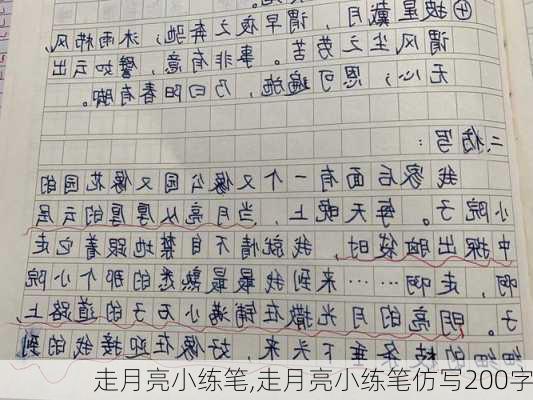 ④披星戴月，谓早夜之奔驰；沐雨栉风，
谓风尘之劳苦。事非有意，譬如云出
无心；恩可遍施，乃曰阳春有脚。
二.仿写：
我家后面有一个又像公园又像花园的
小院子。每天晚上，当月亮从厚厚的云层
中探出脑袋时，我就情不自禁地跟着它走
啊，走啊……来到我最最熟悉的那个小院
子。明亮的月光撒在铺满小石子的道路上，
细细的枝条垂下头来，好像在迎接我的到
走月亮小练笔,走月亮小练笔仿写200字